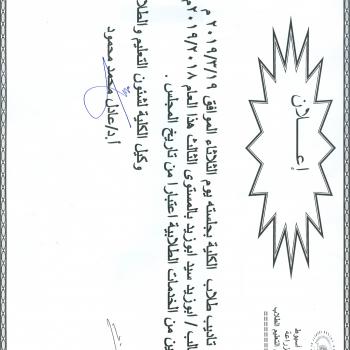 أسيوط
إعلان
تأديب طلاب الكلية بجلسته يوم الثلاثاء الموافق ٢٠١٩/٣/١٩ م
أبوزيد سيد ابوزيد بالمستوى الثالث هذا العام ٢٠١٩/٢٠١٨م
من الخدمات الطلابية اعتبارا من تاريخ المجلس .
وكيل الكلية لشئون التعليم والطلاب
أ.د/عادل محمد محمود